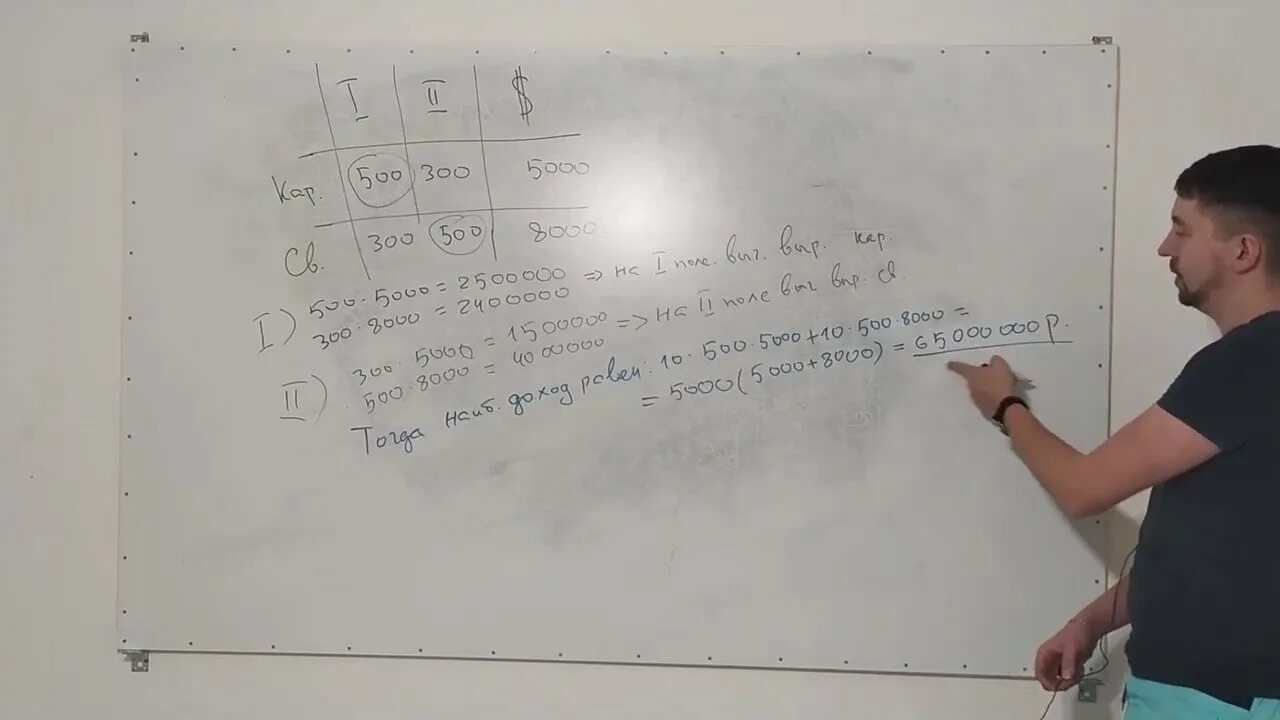 I II $
Кар. 500 300 5000
Св. 300 500 8000
I) 500·5000 = 2500000 => на I поле. выг. выр. кар
300·8000 = 2400000
II) 300·5000 = 1500000 => на II поле выг выр. св.
500·8000 = 4000000
Тогда наиб. доход равен: 10·500·5000+10·500·8000 =
= 5000(5000+8000) = 65000000р.